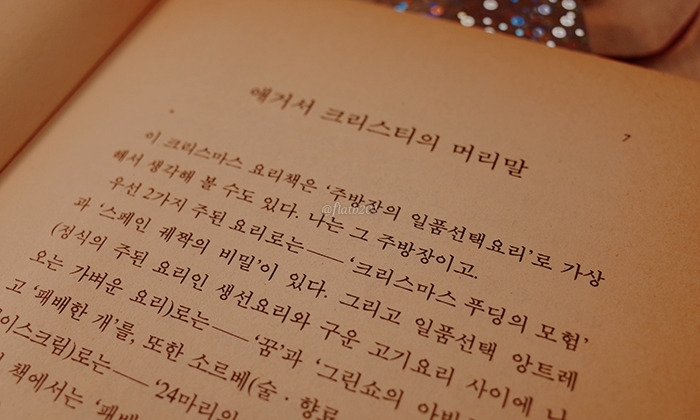 애거서 크리스티의 머리말
7
이 크리스마스 요리책은 '주방장의 일품선택요리'로 가상
해서 생각해 볼 수도 있다. 나는 그 주방장이고.
우선 2가지 주된 요리로는── '크리스마스 푸딩의 모험'
과 '스페인 궤짝의 비밀'이 있다. 그리고 일품선택 앙트레
(정식의 주된 요리인 생선요리와 구운 고기요리 사이에 나
오는 가벼운 요리)로는── '꿈'과 '그린쇼의
고 '패배한 개'를, 또한 소르베(술·향료
이스크림)로는── '24마리의
책에서는 '패배
@flatb2